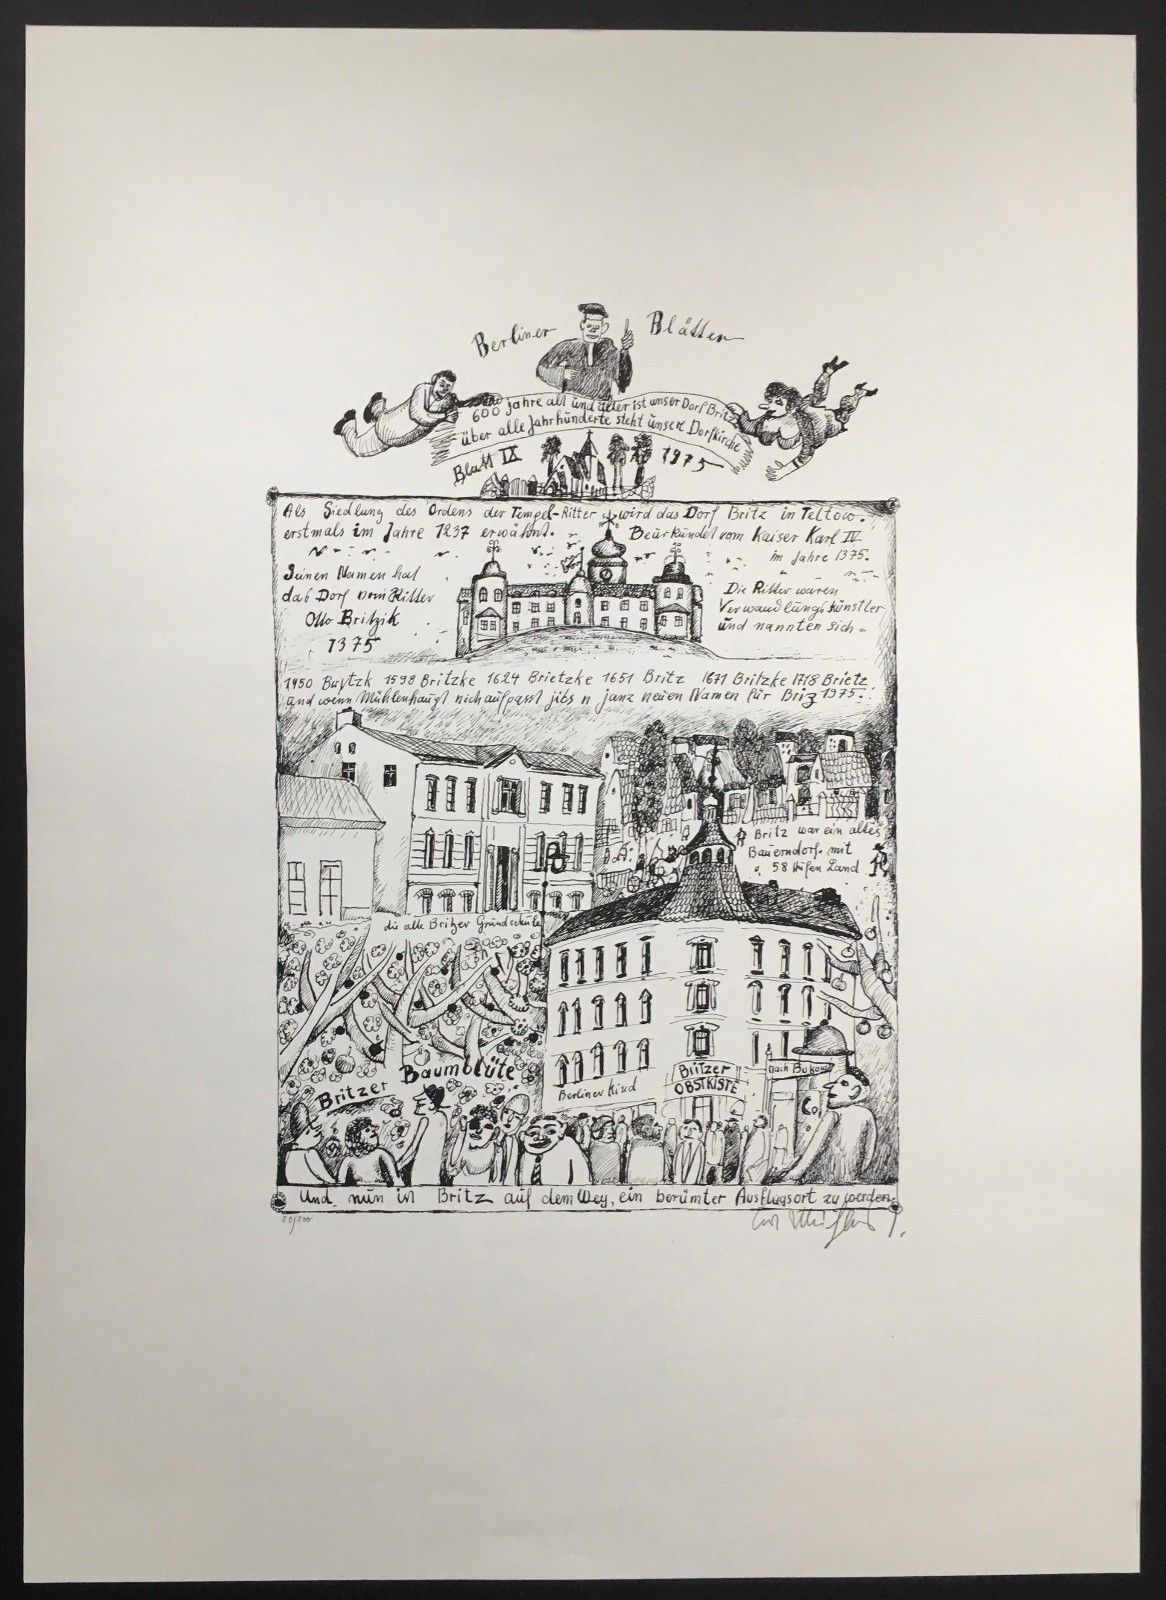 Berliner Blätter
600 Jahre alt und älter ist unser Dorf Britz
über alle Jahrhunderte steht unsere Dorfkirche
Blatt IX 1975
Als Siedlung des Ordens der Tempel-Ritter wird das Dorf Britz in Teltow.
erstmals im Jahre 1237 erwähnt. Beürkündet vom Kaiser Karl IV
im Jahre 1375.
Seinen Namen hat
das Dorf vom Ritter
Otto Britzik
1375
Die Ritter waren
Verwandlüngskünstler
und nannten sich
1450 1598 Britzke 1624 Brietzke 1651 Britz 1671 Britzke 1718 Brietz
und wenn Mühlenhaupt nich aufpasst jibs n janz neuen Namen für Briz 1975.
Britz war ein altes
Bauerndorf mit
58 Hüfen Land
die alte Britzer Gründschüle
Britzer Baumblüte
Berliner Kind
Britzer
OBSTKISTE
nach Bukow
Und nun ist Britz auf dem Weg, ein berümter Ausflugsort zu werden
80/200